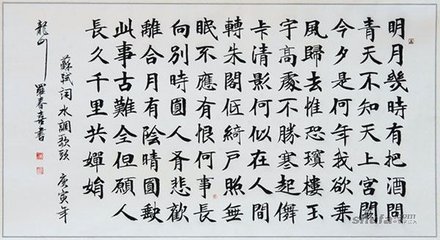 明月幾時有把酒問
青天不知天上宮闕
今夕是何年我欲乘
風歸去惟恐瓊樓玉
宇高處不勝寒起儛
弄清影何似在人間
轉朱閣低綺戶照無
眠不應有恨何事長
向別時圓人有悲歡
離合月有陰晴圓缺
此事古難全但願人
長久千里共嬋娟
蘇軾詞水調歌頭 庚寅年
羅春喜書